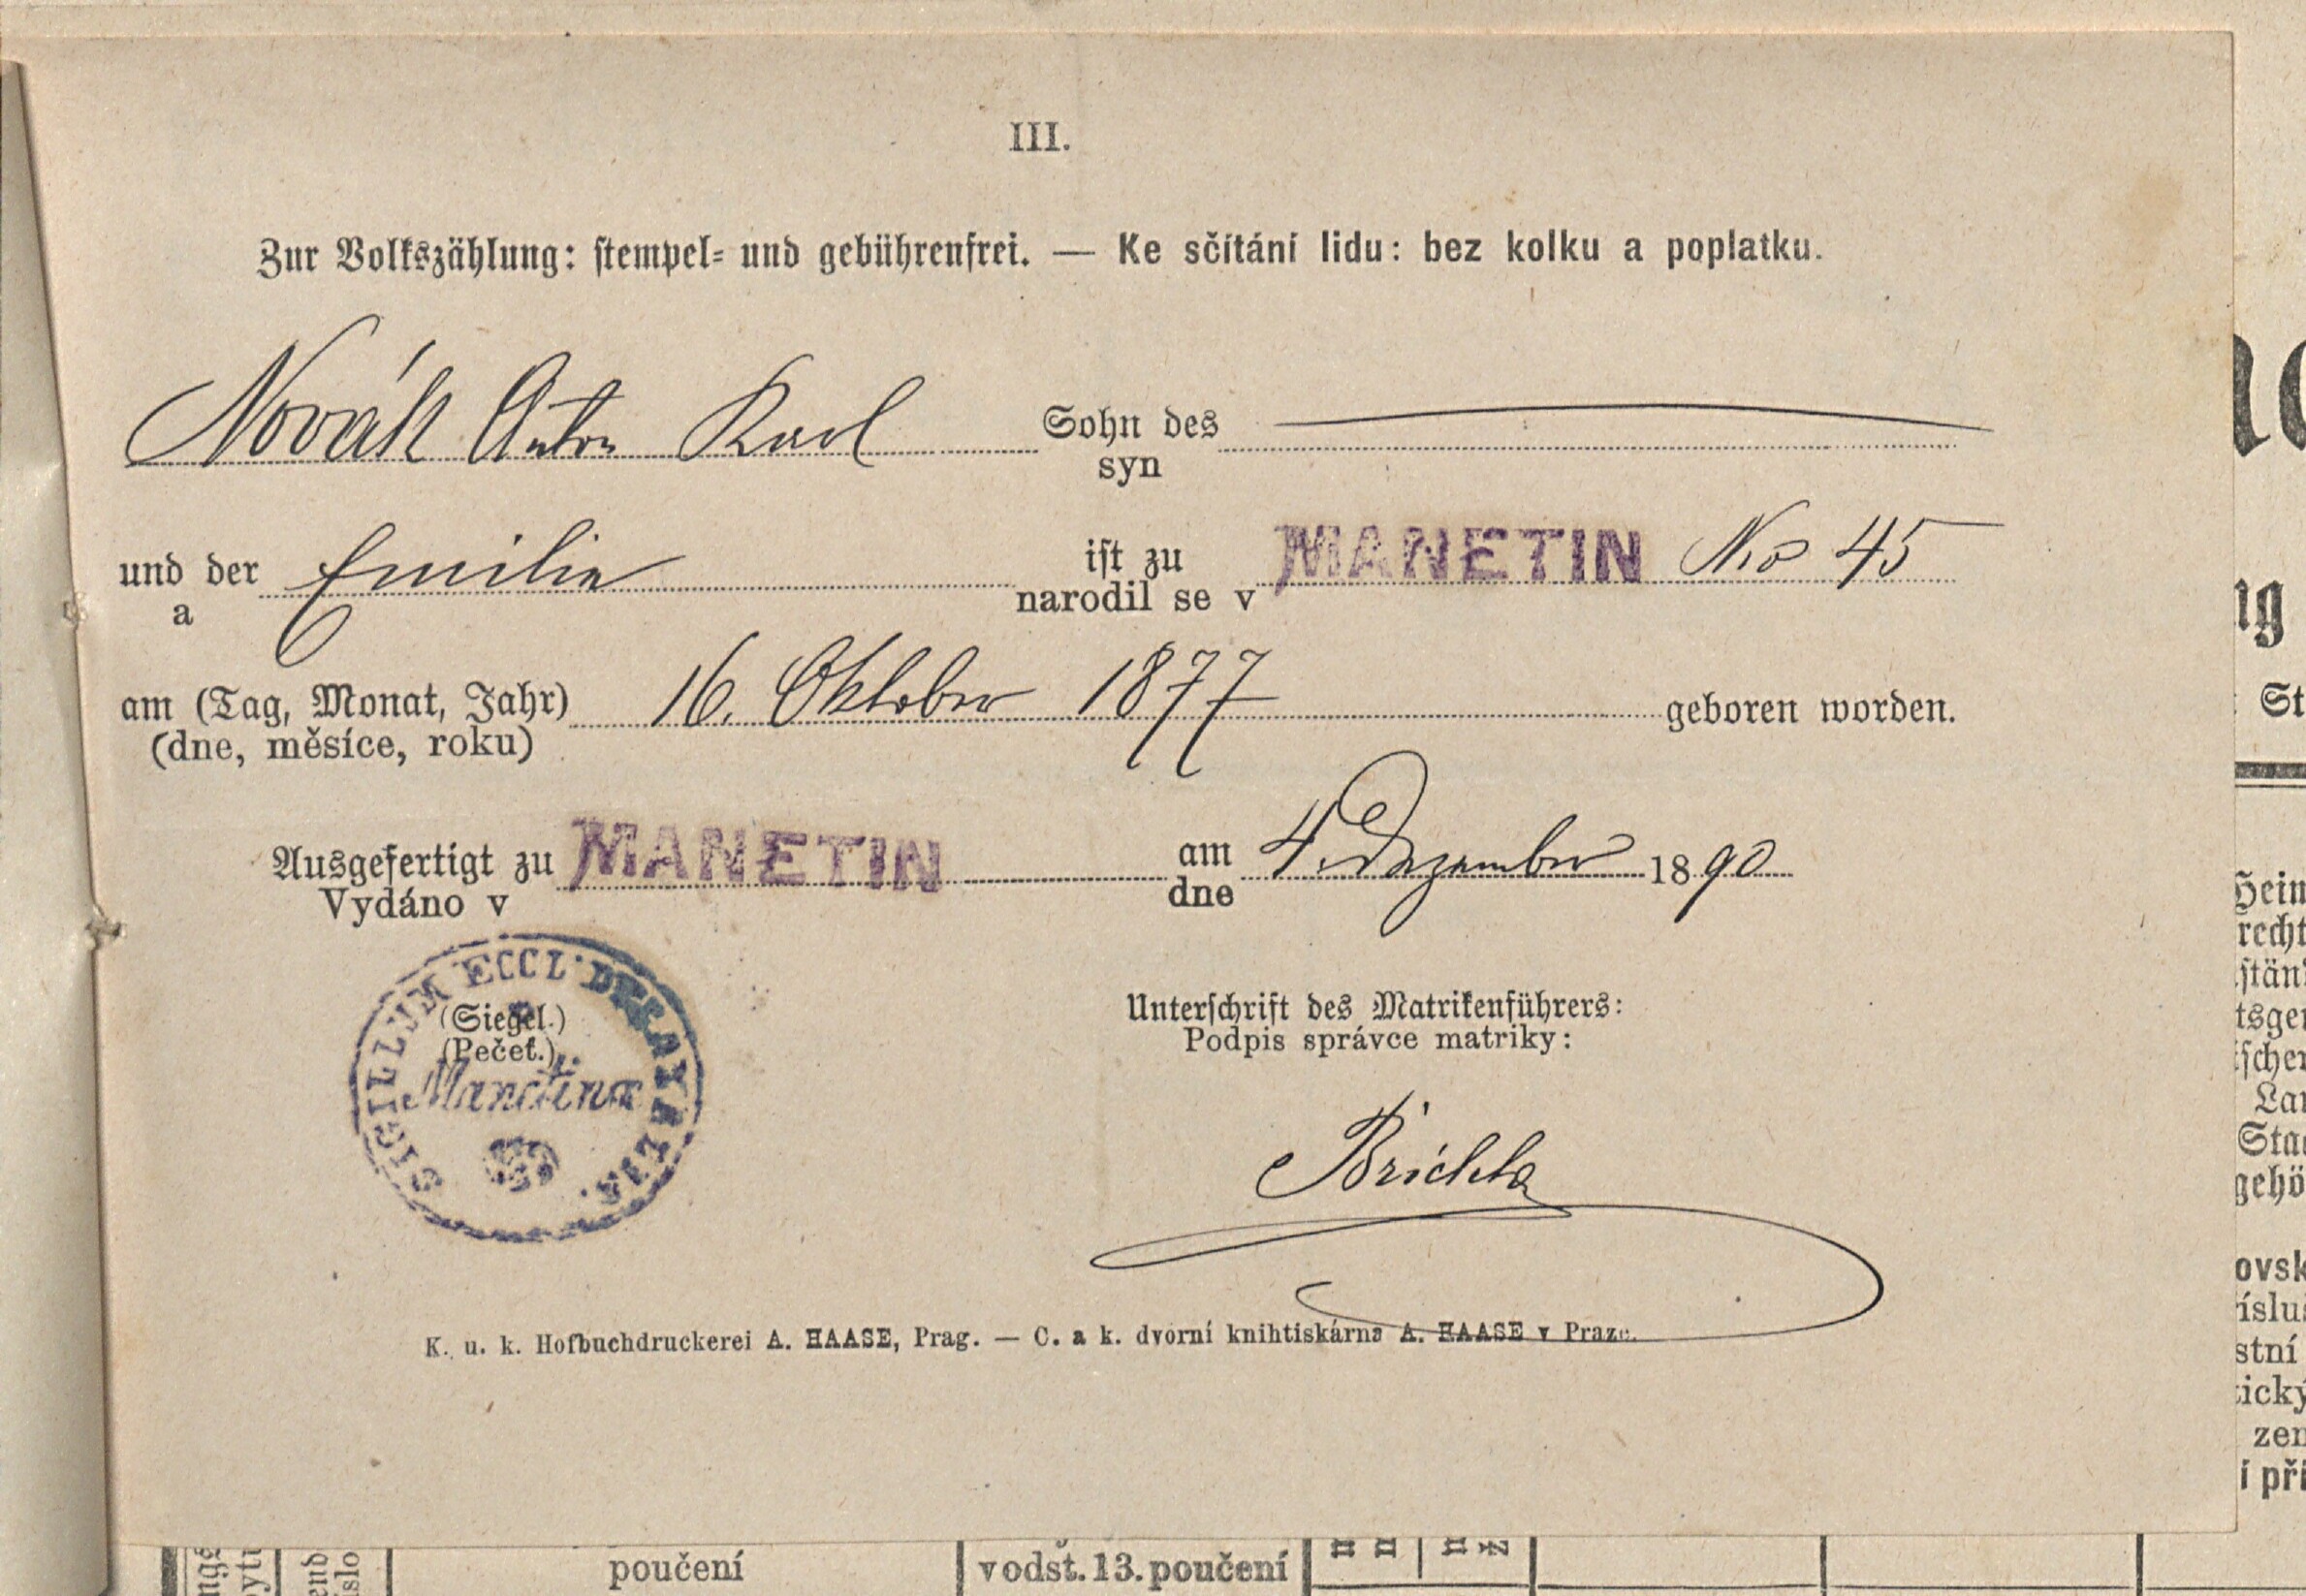 III.
Zur Volkszählung: stempel- und gebührenfrei. — Ke sčítání lidu: bez kolku a poplatku.
Novák Anton Karl Sohn des
syn
und der Emilie ist zu MANETIN No 45
a narodil se v
am (Tag, Monat, Jahr) 16. Oktober 1877 geboren worden.
(dne, měsíce, roku)
Ausgefertigt zu MANETIN am 4. Dezember 1890
Vydáno v dne
SIGILLVM ECCL
(Siegel.)
(Pečeť.)
Manetinæ
Unterschrift des Matrikenführers:
Podpis správce matriky:
Brichta
K. u. k. Hofbuchdruckerei A. HAASE, Prag. — C. a k. dvorní knihtiskárna A. HAASE v Praze.
poučení
v odst. 13. poučení